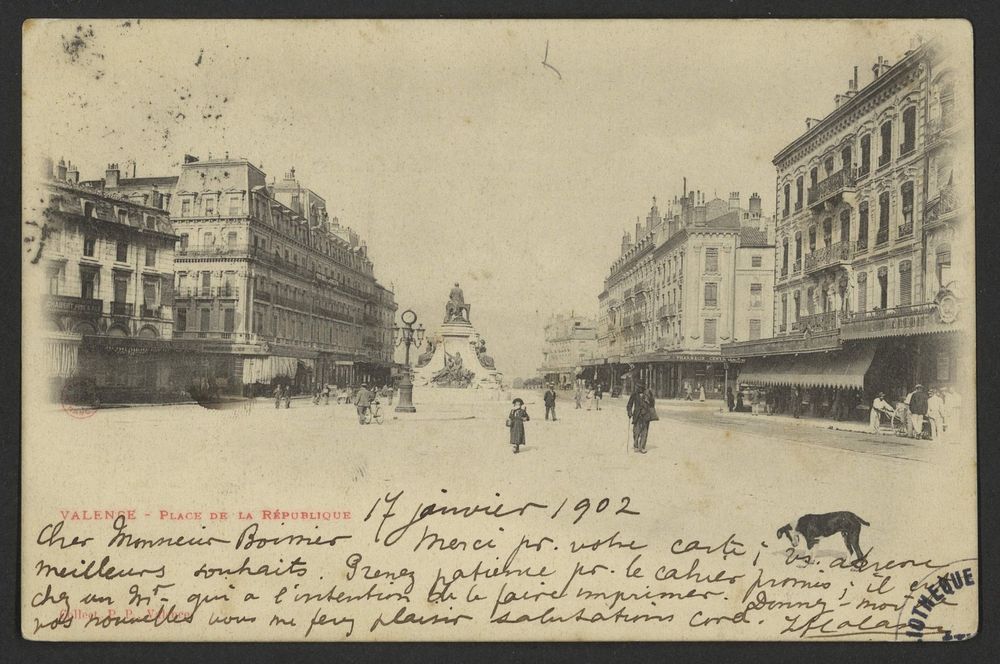 PHARMACIE CENT
VALENCE - PLACE DE LA RÉPUBLIQUE
17 janvier 1902
Cher Monsieur Boimier Merci pr. votre carte; vs. adresse
meilleurs souhaits. Prenez patience pr. le cahier promis; il est
chez un Mr. qui a l'intention de le faire imprimer. Donnez-moi de
Collect. P. P., Valence
vos nouvelles vous me ferez plaisir salutations cord.
LIOTHÈQUE